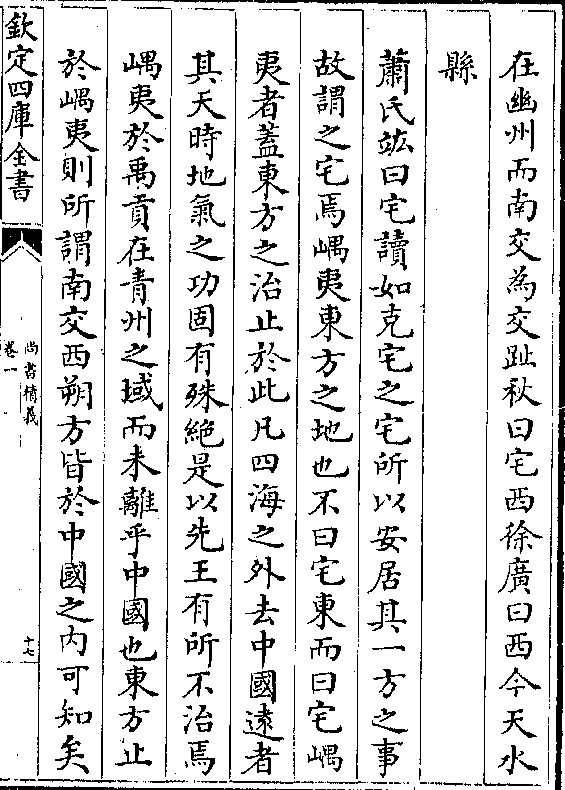 在幽州而南交為交趾秋曰宅西徐廣曰西今天水
縣
蕭氏竑曰宅讀如克宅之宅所以安居其一方之事
故謂之宅焉嵎夷東方之地也不曰宅東而曰宅嵎
夷者蓋東方之治止於此凡四海之外去中國逺者
其天時地氣之功固有殊絶是以先王有所不治焉
嵎夷於禹貢在青州之域而未離乎中國也東方止
於嵎夷則所謂南交西朔方皆於中國之内可知矣
欽定四庫全書
尚書精義
卷一
十七